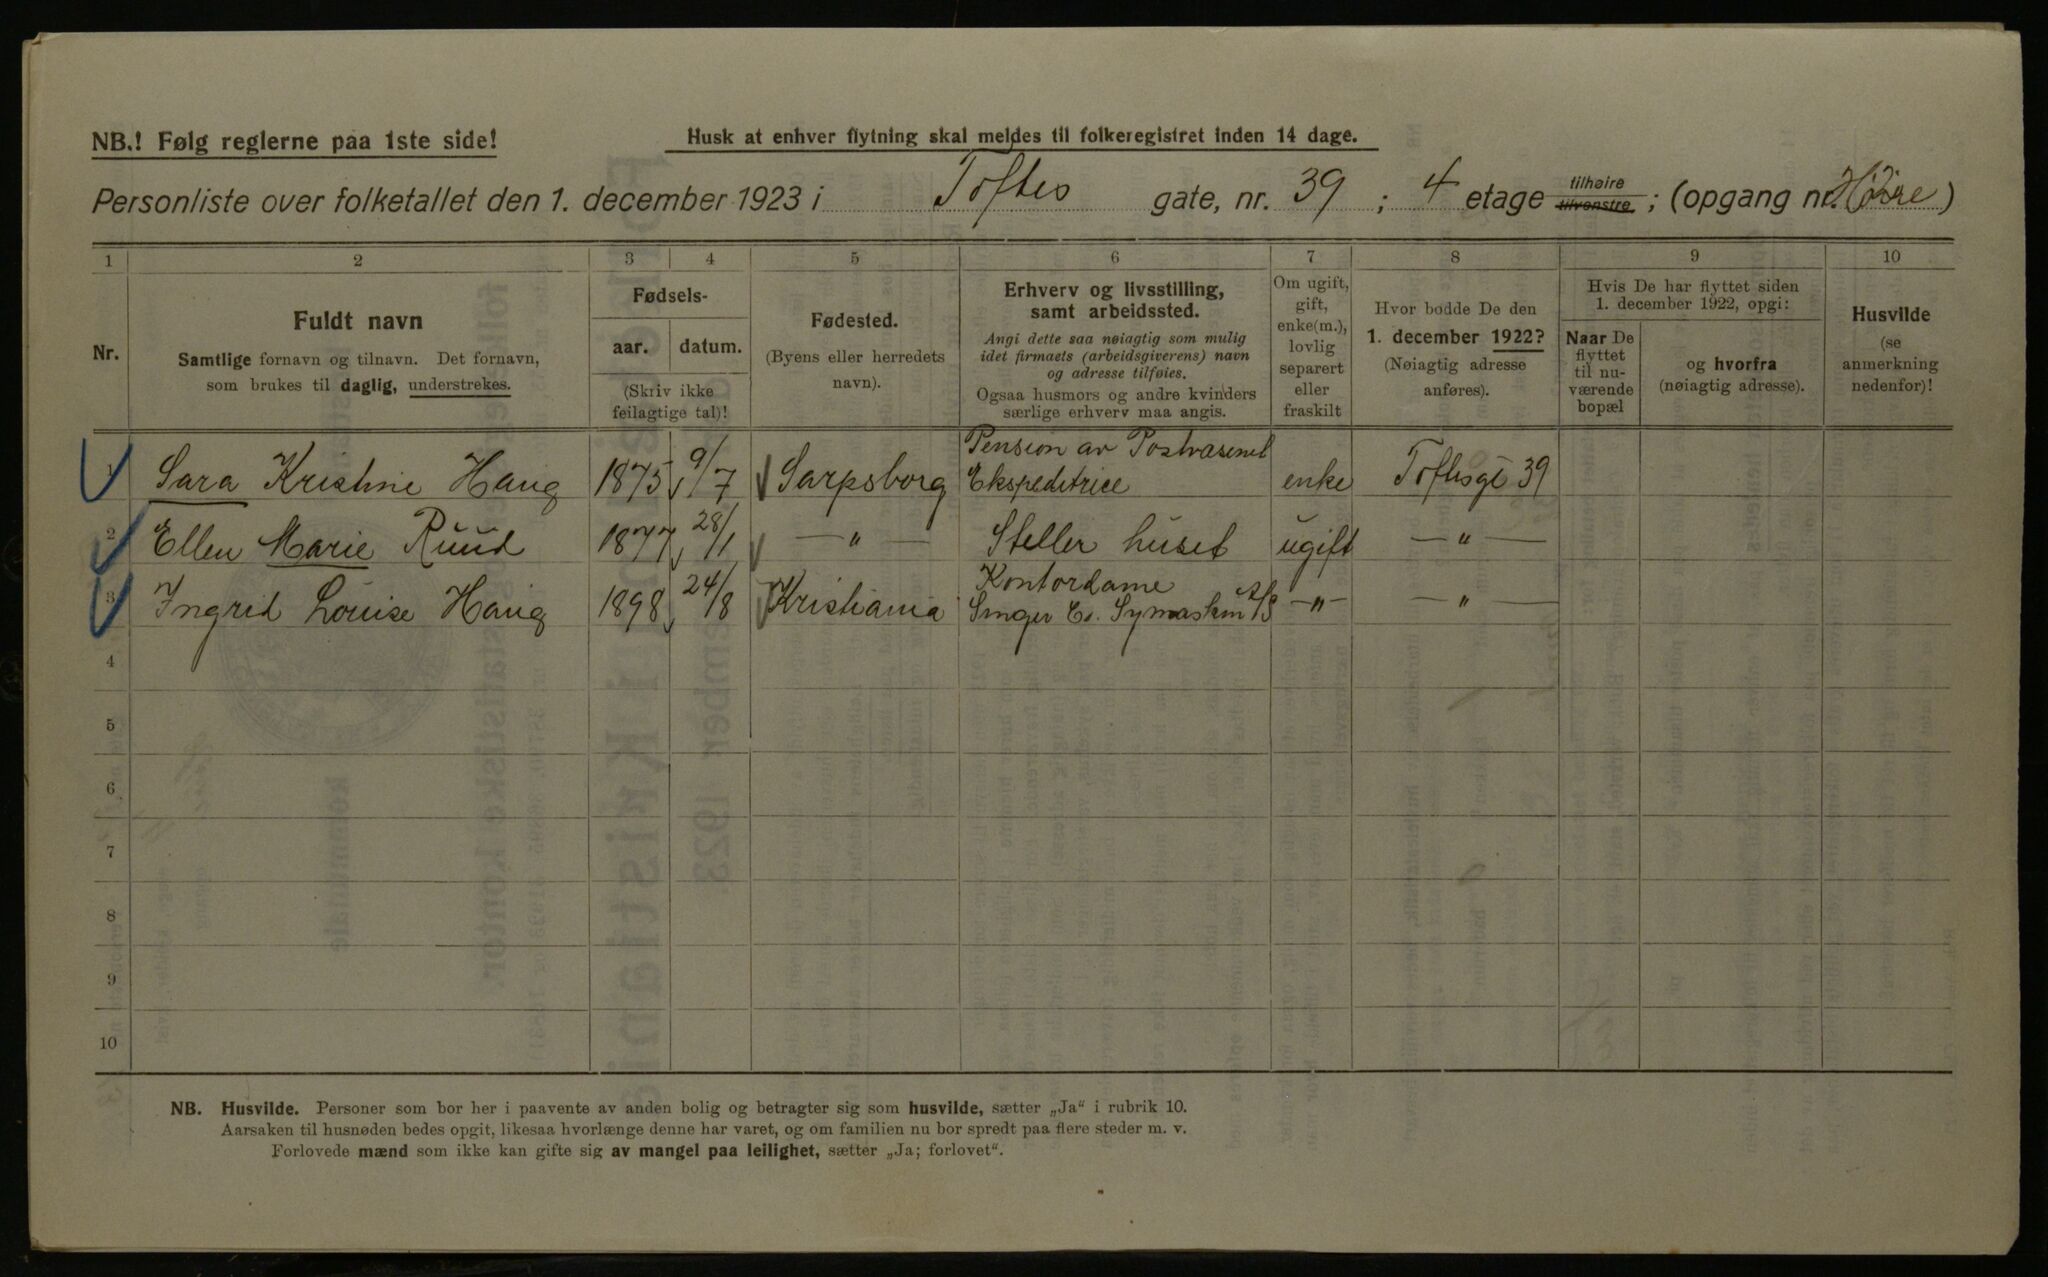 NB.! Følg reglerne paa 1ste side!
Husk at enhver flytning skal meldes til folkeregistret inden 14 dage.
Personliste over folketallet den 1. december 1923 i Toftes gate, nr. 39 ; 4 etage tilhøire tilvenstre ; (opgang nr. Høire)
1 2 3 4 5 6 7 8 9 10
Nr.
Fuldt navn
Samtlige fornavn og tilnavn. Det fornavn,
som brukes til daglig, understrekes.
Fødsels-
aar. datum.
(Skriv ikke
feilagtige tal)!
Fødested.
(Byens eller herredets
navn).
Erhverv og livsstilling,
samt arbeidssted.
Angi dette saa nøiagtig som mulig
idet firmaets (arbeidsgiverens) navn
og adresse tilføies.
Ogsaa husmors og andre kvinders
særlige erhverv maa angis.
Om ugift,
gift,
enke(m.),
lovlig
separert
eller
fraskilt
Hvor bodde De den
1. december 1922?
(Nøiagtig adresse
anføres).
Hvis De har flyttet siden
1. december 1922, opgi:
Naar De
flyttet
til nu-
værende
bopæl
og hvorfra
(nøiagtig adresse).
Husvilde
(se
anmerkning
nedenfor)!
1 Sara Kristine Haug 1875 9/7 Sarpsborg Pension av Postvæsenet
Ekspeditrice enke Toftesgt 39
2 Ellen Marie Ruud 1877 28/1 — „ — Steller huset ugift — „ —
3 Ingrid Louise Haug 1898 24/8 Kristiania Kontordame
Singer Co. Symaskin A/S — „ — — „ —
4
5
6
7
8
9
10
NB. Husvilde. Personer som bor her i paavente av anden bolig og betragter sig som husvilde, sætter „Ja“ i rubrik 10.
Aarsaken til husnøden bedes opgit, likesaa hvorlænge denne har varet, og om familien nu bor spredt paa flere steder m. v.
Forlovede mænd som ikke kan gifte sig av mangel paa leilighet, sætter „Ja; forlovet“.